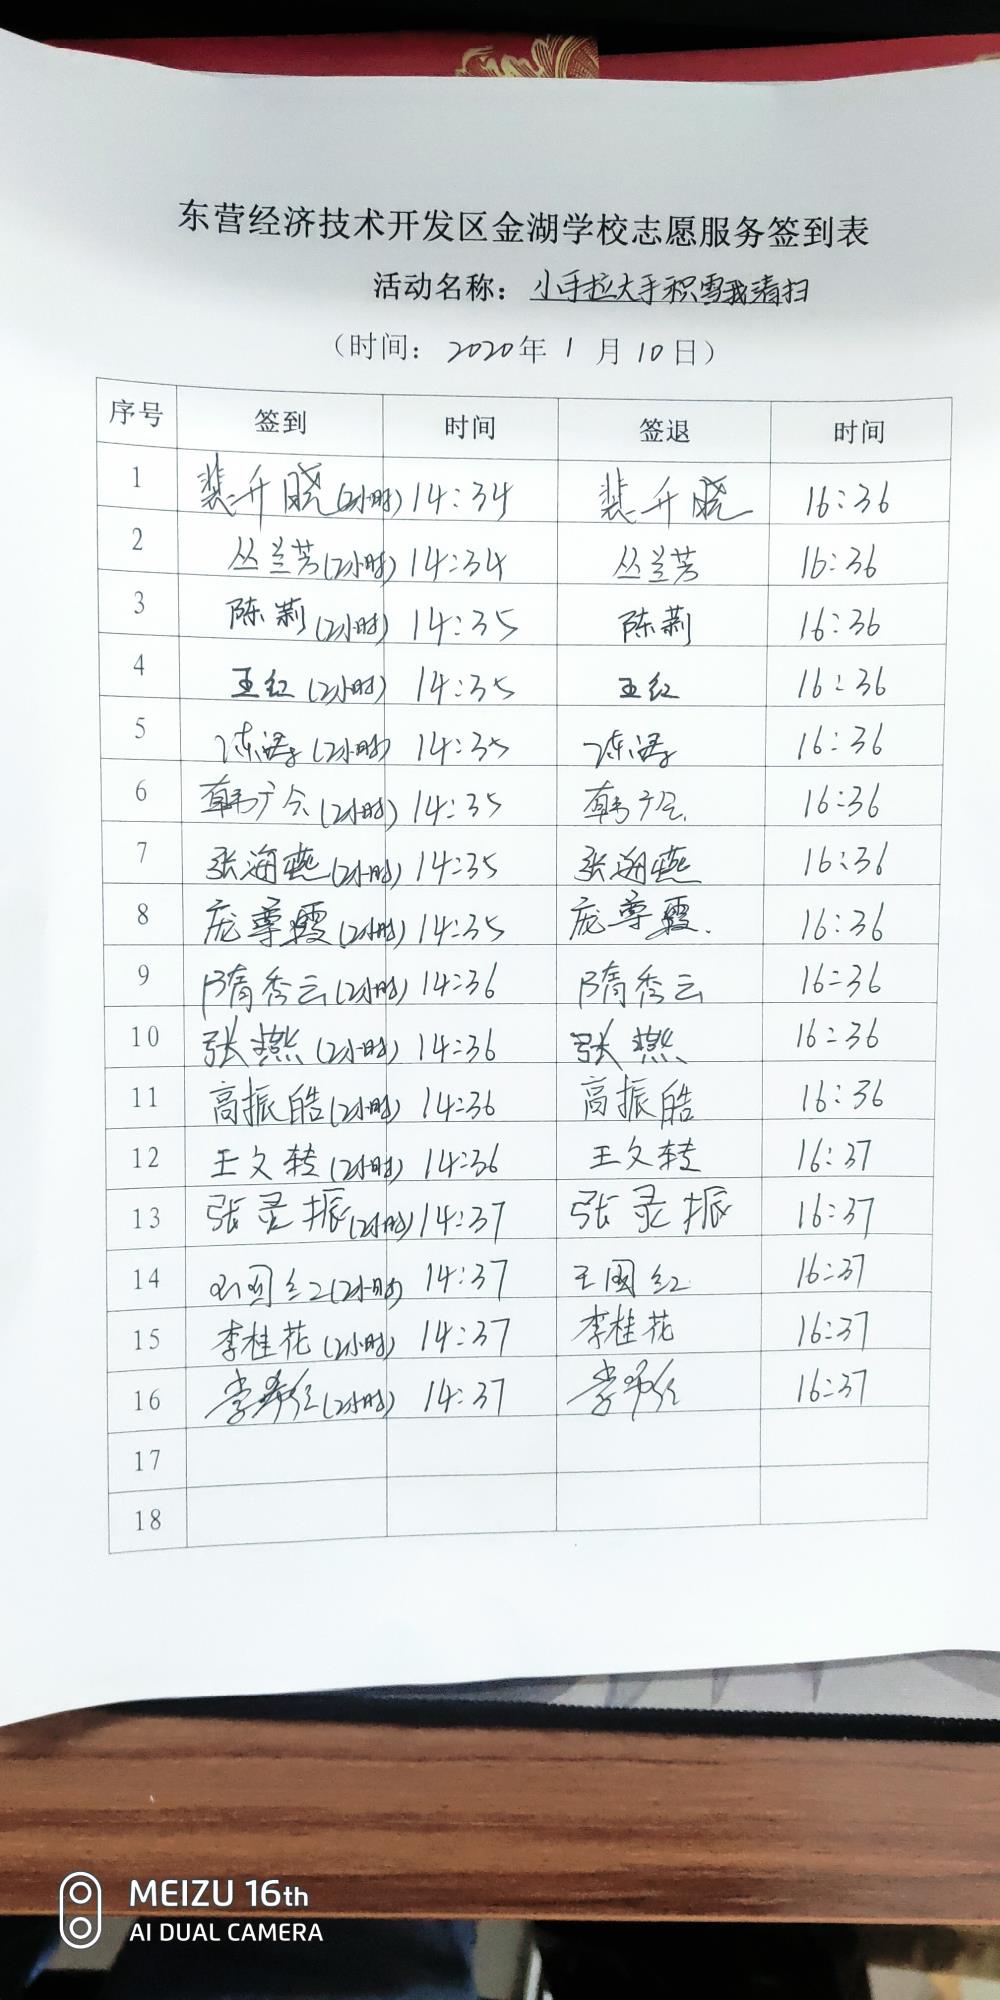 东营经济技术开发区金湖学校志愿服务签到表
活动名称：小手拉大手积雪我清扫
（时间：2020年 1 月 10日）
序号 签到 时间 签退 时间
1 裴升晓(2小时) 14:34 裴升晓 16:36
2 丛兰芳(2小时) 14:34 丛兰芳 16:36
3 陈莉(2小时) 14:35 陈莉 16:36
4 王红(2小时) 14:35 王红 16:36
5 (2小时) 14:35 16:36
6 韩广会(2小时) 14:35 韩广会 16:36
7 张海燕(2小时) 14:35 张海燕 16:36
8 庞尊霞(2小时) 14:35 庞尊霞 16:36
9 隋秀云(2小时) 14:36 隋秀云 16:36
10 张燕(2小时) 14:36 张燕 16:36
11 高振皓(2小时) 14:36 高振皓 16:36
12 王文转(2小时) 14:36 王文转 16:37
13 张灵振(2小时) 14:37 张灵振 16:37
14 王国红(2小时) 14:37 王国红 16:37
15 李桂花(2小时) 14:37 李桂花 16:37
16 (2小时) 14:37 16:37
17
18
MEIZU 16th
AI DUAL CAMERA